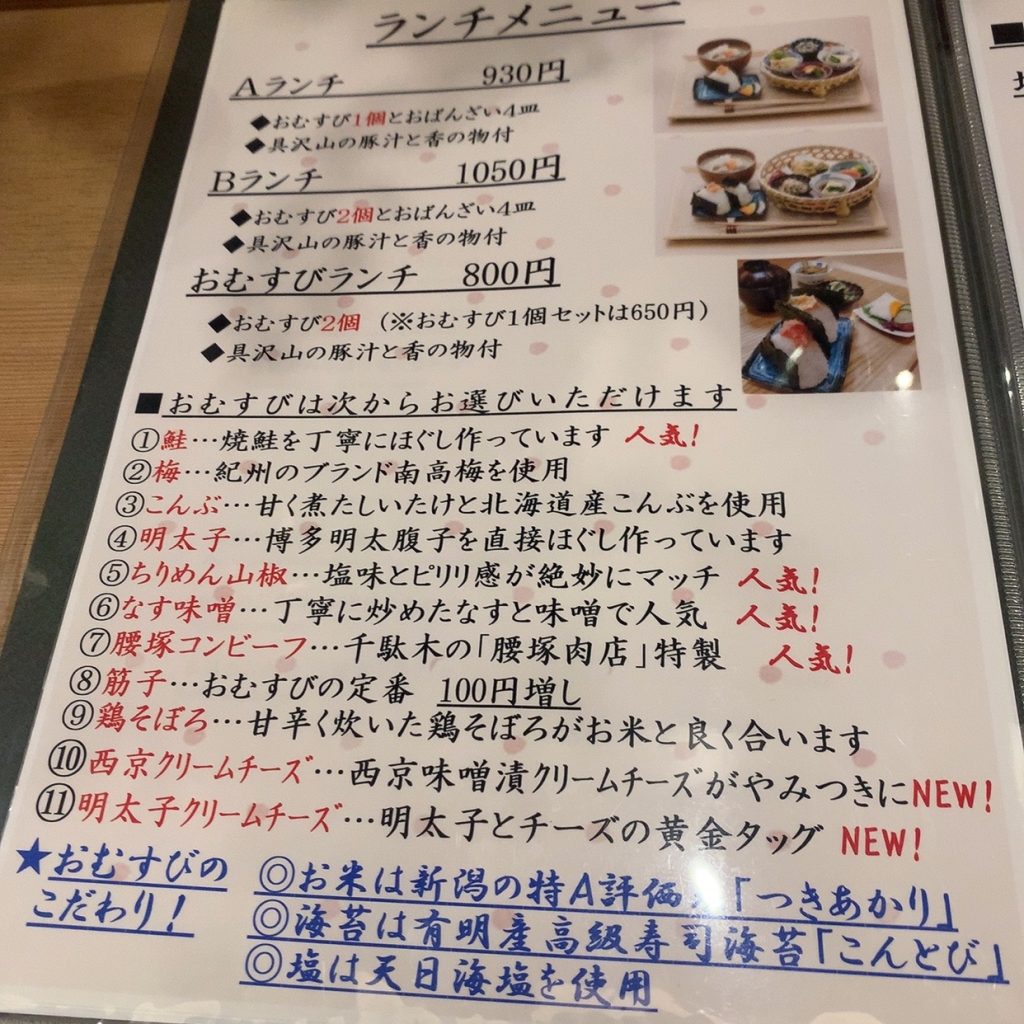 ランチメニュー
Aランチ 930円
◆おむすび1個とおばんざい4皿
◆具沢山の豚汁と香の物付
Bランチ 1050円
◆おむすび2個とおばんざい4皿
◆具沢山の豚汁と香の物付
おむすびランチ 800円
◆おむすび2個（※おむすび1個セットは650円）
◆具沢山の豚汁と香の物付
■おむすびは次からお選びいただけます
①鮭…焼鮭を丁寧にほぐし作っています 人気！
②梅…紀州のブランド南高梅を使用
③こんぶ…甘く煮たしいたけと北海道産こんぶを使用
④明太子…博多明太腹子を直接ほぐし作っています
⑤ちりめん山椒…塩味とピリリ感が絶妙にマッチ 人気！
⑥なす味噌…丁寧に炒めたなすと味噌で人気 人気！
⑦腰塚コンビーフ…千駄木の「腰塚肉店」特製 人気！
⑧筋子…おむすびの定番 100円増し
⑨鶏そぼろ…甘辛く炊いた鶏そぼろがお米と良く合います
⑩西京クリームチーズ…西京味噌漬クリームチーズがやみつきにNEW！
⑪明太子クリームチーズ…明太子とチーズの黄金タッグ NEW！
★おむすびの
こだわり！
◎お米は新潟の特A評価「つきあかり」
◎海苔は有明産高級寿司海苔「こんとび」
◎塩は天日海塩を使用